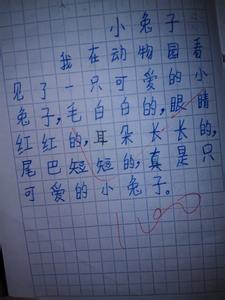 小兔子
我在动物园看
见了一只可爱的小
兔子,毛白白的,眼睛
红红的,耳朵长长的,
尾巴短短的,真是只
可爱的小兔子。
100